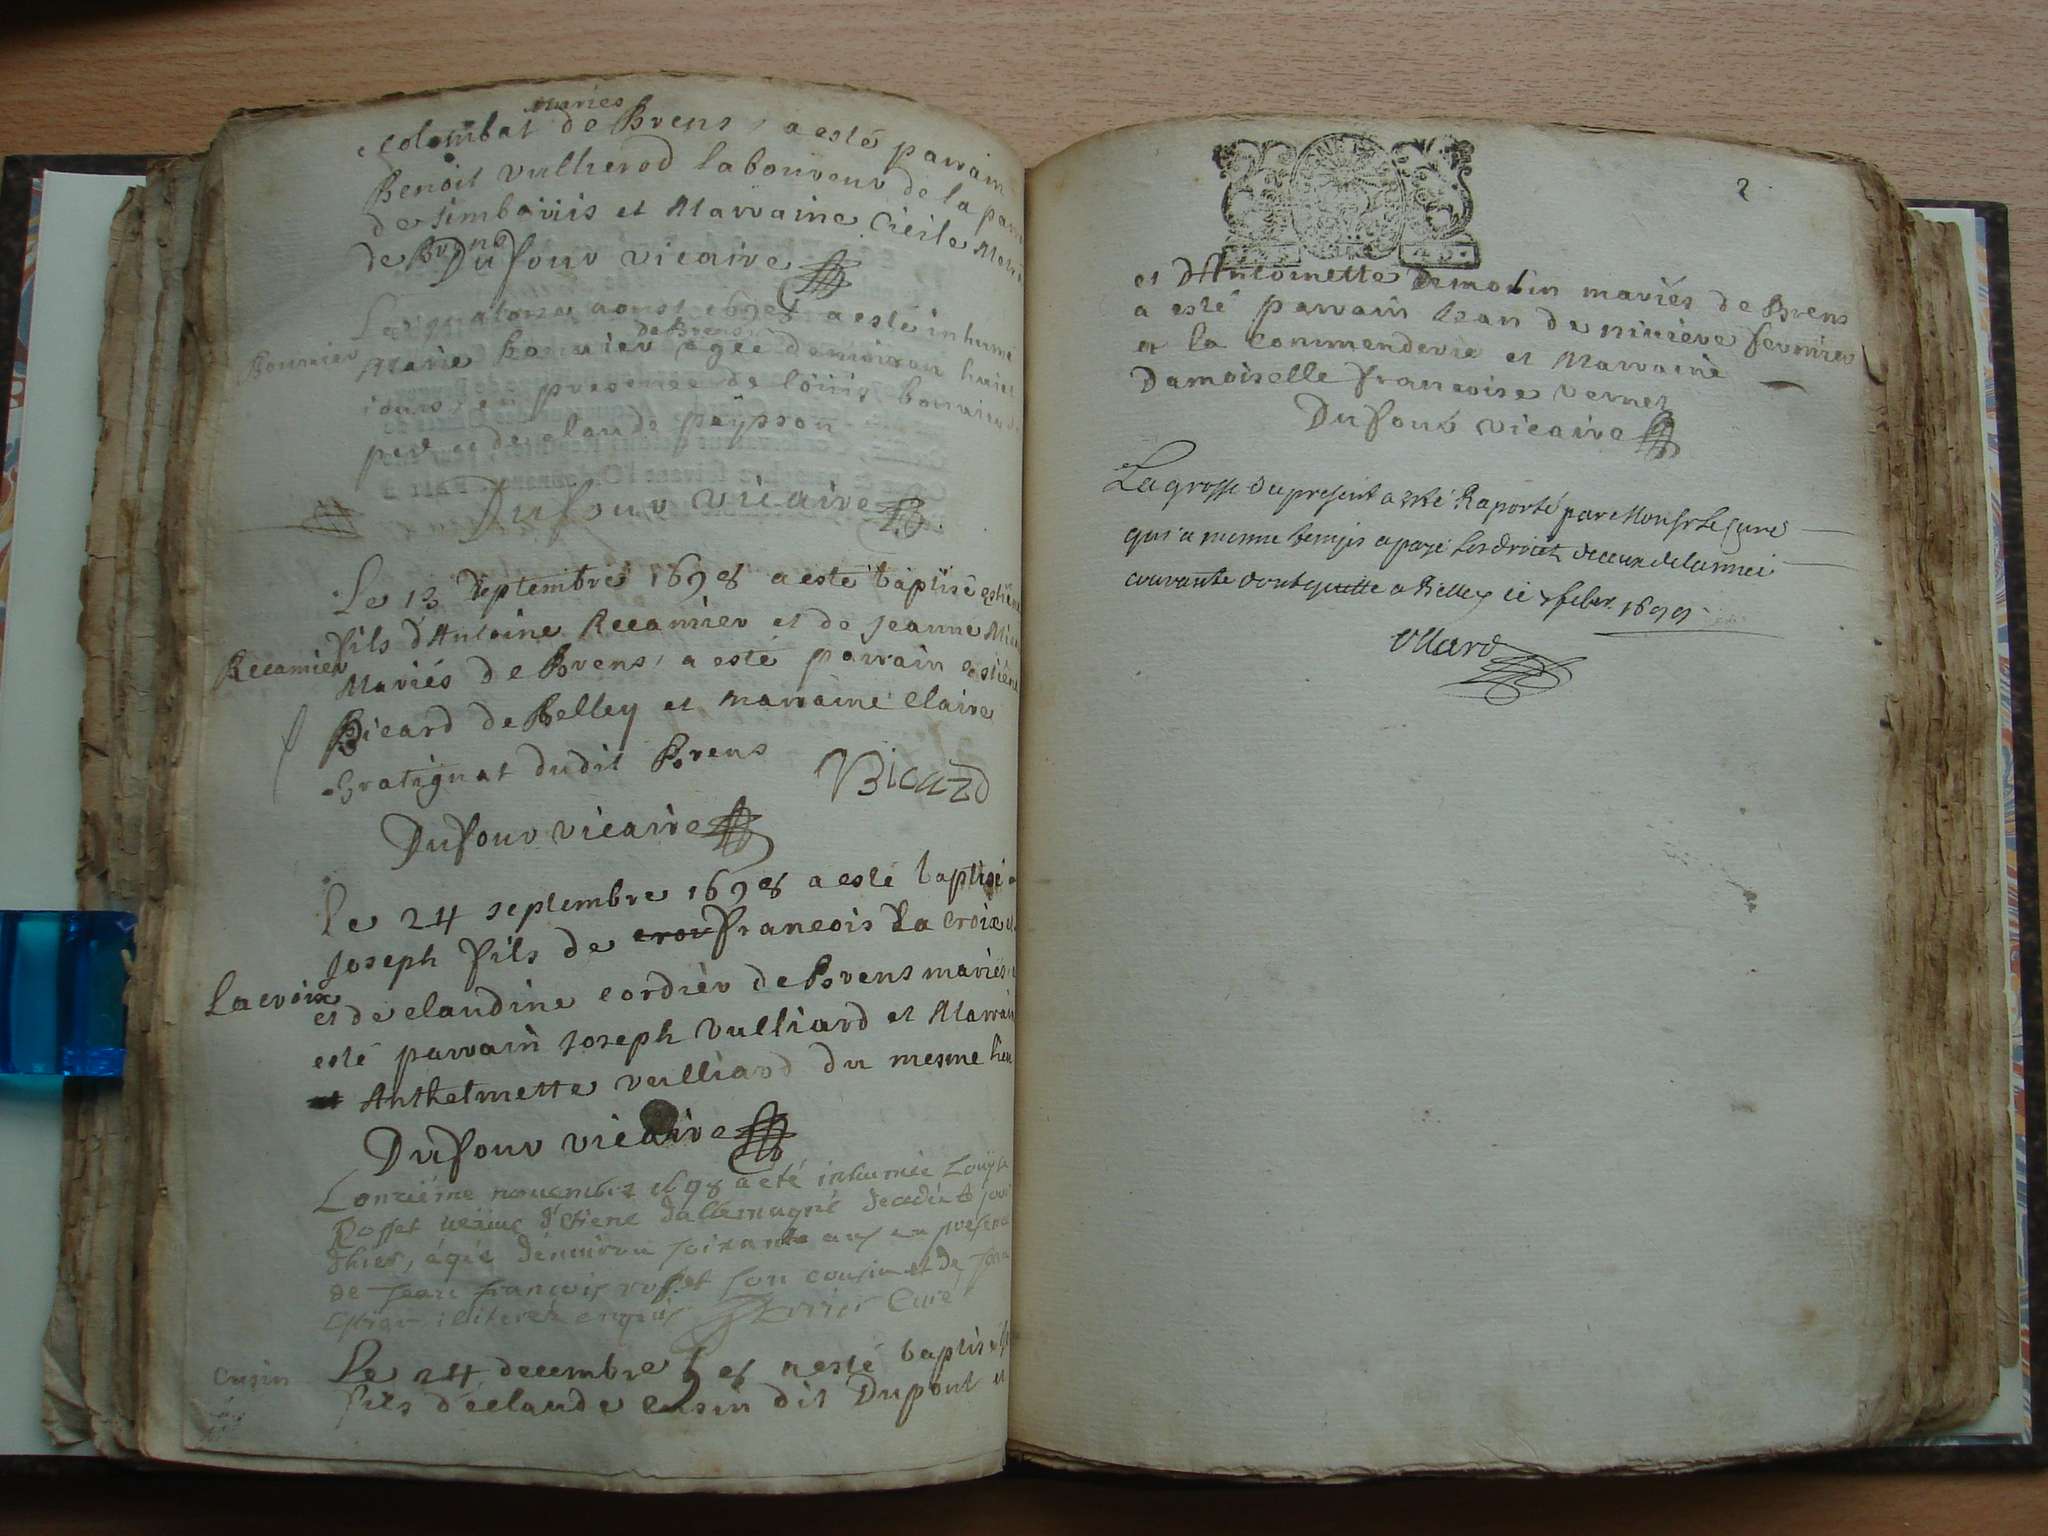 mariés
colombat de Brens, a esté parrain
Benoit vullierod laboureur de la
de et Marraine Cécile
de Brens
Dufour vicaire
Le quatorze aoust 1698 a esté inhumé
de Brens
Bonnier
Marie Bonnier agée d'environ huict
iours, en presence de loüis bonnier
pere et de claude peysson
Dufour vicaire
Le 13 Septembre 1698 a esté baptisé estiene
fils d'Antoine Recamier et de Jeanne
Recamier
Mariés de Brens, a esté parrain estiene
Bicard de Belley et marraine Claire
Gratignat dudit Brens
Bicard
Dufour vicaire
Le 24 septembre 1698 a esté baptisé
Joseph fils de crov francois La croix
Lacroix
et de claudine cordier de Brens mariés
esté parrain Joseph vulliard et Marraine
et Anthelmette vulliard du mesme lieu
Dufour vicaire
L'onziéme novembre 1698 a été inhumée Louyse
Rosset veüve d'Etiene dallemagne decedée le jour
d'hier, agée d'environ soixante ans en presence
de Jean françois rosset son cousin et de
illiterés enquis curé
cusin
Le 24 decembre 98 a esté baptisé
fils de claude cusin dit Dupont et
2
et d'Antoinette demolin mariés de Brens
a esté parrain Jean de riviere fermier
et la Commenderie et Marraine
Damoiselle francoise vernet
Dufour vicaire
La grosse du present a esté Raporté par Monsr Le curé
qui a mesme temps a payé les droict de ceux de lannée
courante dont quitte a Belley ce 7 febvr 1699